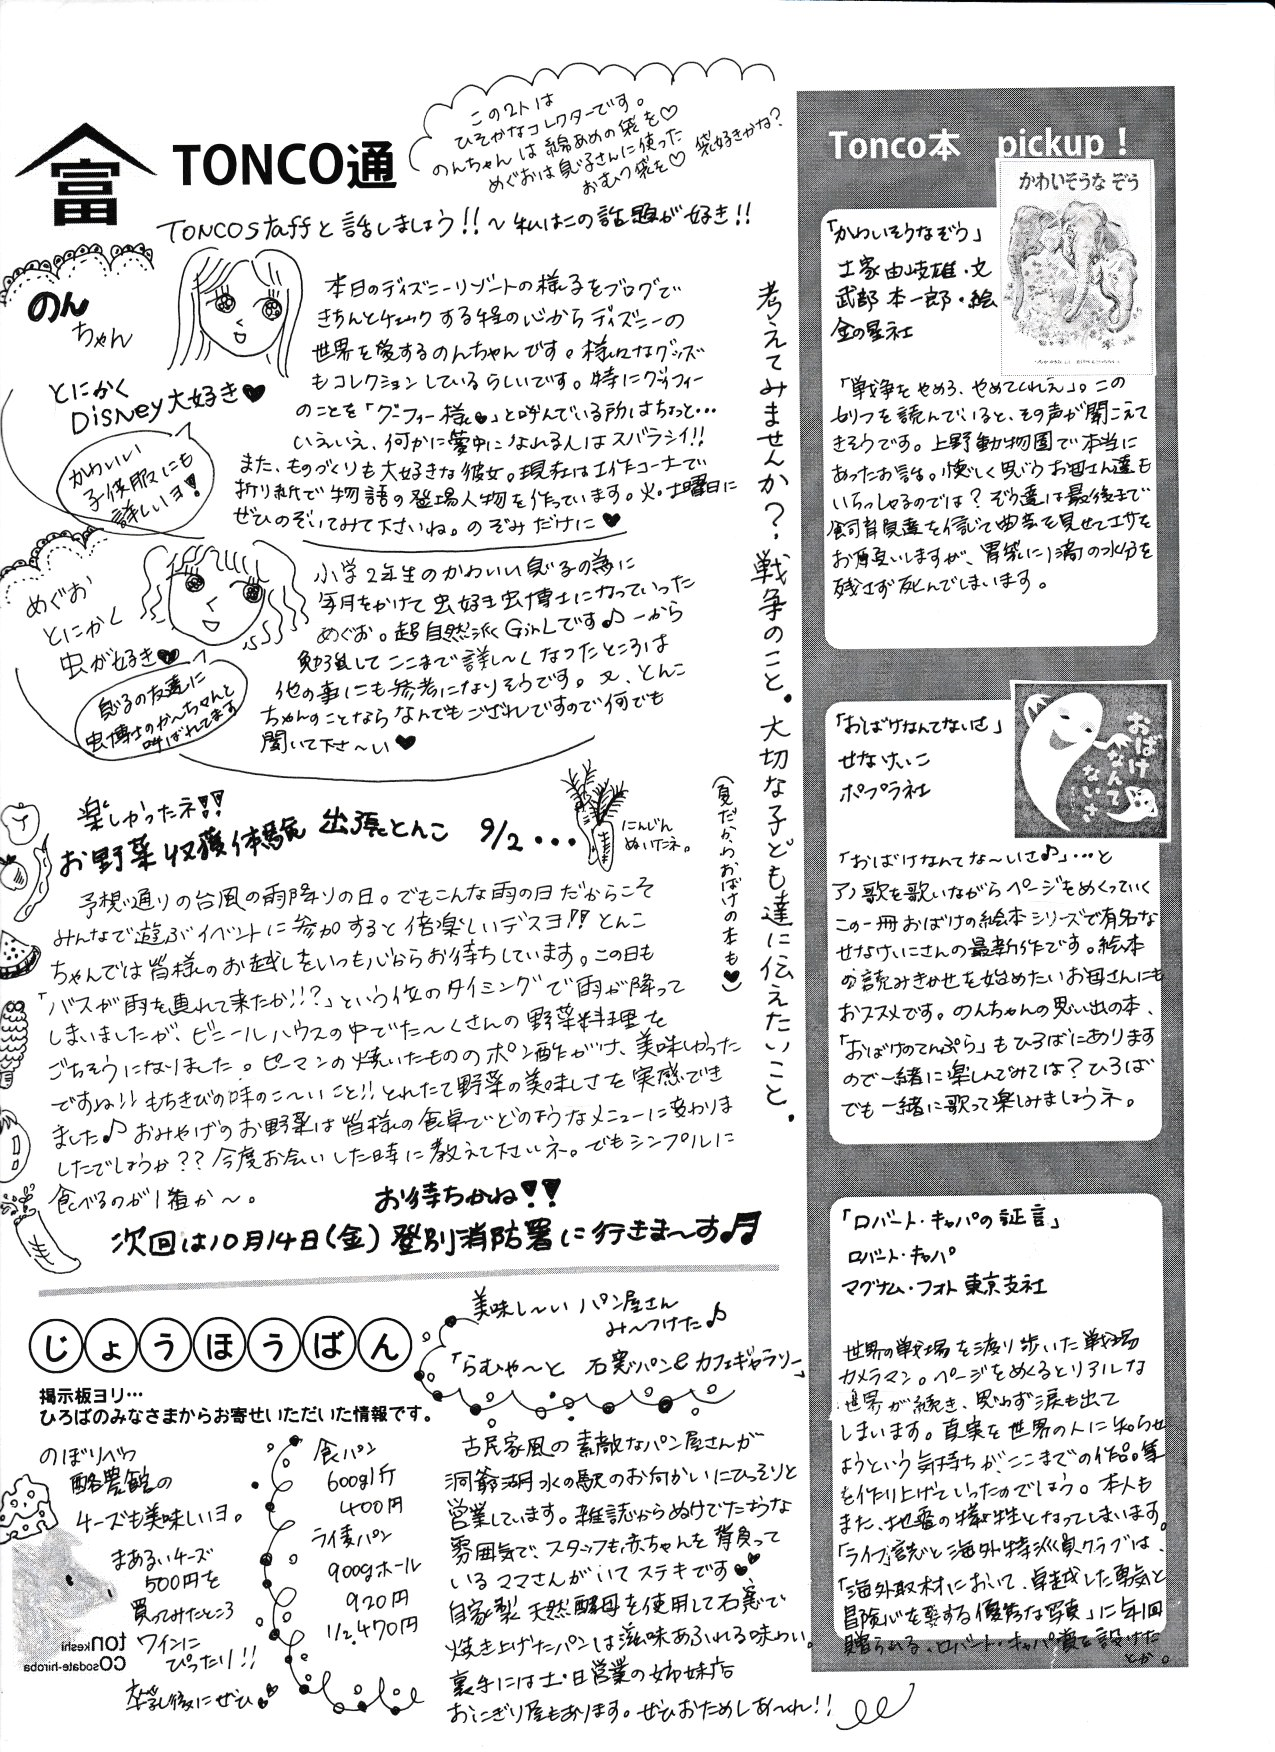 富
TONCO通
この2人は
ひそかなコレクターです。
のんちゃんは綿あめの袋を♡
めぐおは息子さんに使った
おむつ袋を♡ 袋好きかな?
TONCOstaffと話しましょう!!～私はこの話題が好き!!
のん
ちゃん
とにかく
Disney大好き♥
かわいい
子供服にも
詳しいヨ!
本日のディズニーリゾートの様子をブログで
きちんとチェックする程の心からディズニーの
世界を愛するのんちゃんです。様々なグッズ
もコレクションしているらしいです。特にグーフィー
のことを「グーフィー様♥」と呼んでいる所はちょっと…
いえいえ、何かに夢中になれる人はスバラシイ!!
また、ものづくりも大好きな彼女。現在は工作コーナーで
折り紙で物語の登場人物を作っています。火・土曜日に
ぜひのぞいてみて下さいね。のぞみだけに♥
めぐお
とにかく
虫が好き♥
息子の友達に
虫博士のかーちゃんと
呼ばれてます
小学2年生のかわいい息子の為に
年月をかけて虫好き虫博士になっていった
めぐお。超自然派GirLです♪一から
勉強してここまで詳し～くなったところは
他の事にも参考になりそうです。又、とんこ
ちゃんのことならなんでもござれですので何でも
聞いて下さ～い♥
考えてみませんか?戦争のこと。大切な子ども達に伝えたいこと。
(夏だからおばけの本も♥)
楽しかったネ!!
お野菜収獲体験 出張とんこ 9/2・・・
にんじん
ぬいけたネ。
予想通りの台風の雨降りの日。でもこんな雨の日だからこそ
みんなで遊ぶイベントに参加すると倍楽しいデスヨ!!とんこ
ちゃんでは皆様のお越しをいつも心からお待ちしています。この日も
「バスが雨を連れて来たか!!?」という位のタイミングで雨が降って
しまいましたが、ビニールハウスの中でた～くさんの野菜料理を
ごちそうになりました。ピーマンの焼いたもののポン酢がけ、美味しかった
ですね!!もちきびの味のこ～いこと!!とれたて野菜の美味しさを実感でき
ました♪おみやげのお野菜は皆様の食卓でどのようなメニューに変わりま
したでしょうか??今度お会いした時に教えて下さいネ。でもシンプルに
食べるのが1番か～。
お待ちかね!!
次回は10月14日(金)登別消防署に行きま～す♬
じょうほうばん
掲示板ヨリ…
ひろばのみなさまからお寄せいただいた情報です。
のぼりべつ
酪農館の
チーズも美味しいヨ。
まあるいチーズ
500円を
買ってみたところ
ワインに
ぴったり!!
卒乳後にぜひ♥
tonkeshi
COsodate-hiroba
食パン
600g1斤
400円
ライ麦パン
900gホール
920円
1/2,470円
美味し～い パン屋さん
み～つけた♪
「らむや～と 石窯パン&カフェギャラリー」
古民家風の素敵なパン屋さんが
洞爺湖水の駅のお向かいにひっそりと
営業しています。雑誌からぬけでたような
雰囲気で、スタッフも赤ちゃんを背負って
いるママさんがいてステキです♥
自家製天然酵母を使用して石窯で
焼き上げたパンは滋味あふれる味わい。
裏手には土・日営業の姉妹店
おにぎり屋もあります。ぜひおためしあ～れ!!
Tonco本 pickup!
かわいそうな ぞう
「かわいそうなぞう」
土家由岐雄・文
武部本一郎・絵
金の星社
「戦争をやめろ、やめてくれえ」。この
セリフを読んでいると、その声が聞こえて
きそうです。上野動物園で本当に
あったお話。懐しく思うお母さん達も
いらっしゃるのでは?ぞう達は最後まで
飼育員達を信じて曲芸を見せてエサを
お願いしますが、胃袋に1滴の水分を
残さず死んでしまいます。
おばけなんてないさ
「おばけなんてないさ」
せなけいこ
ポプラ社
「おばけなんてな～いさ♪」…と
アノ歌を歌いながらページをめくっていく
この一冊おばけの絵本シリーズで有名な
せなけいこさんの最新作です。絵本
の読みきかせを始めたいお母さんにも
おススメです。のんちゃんの思い出の本、
「おばけのてんぷら」もひろばにあります
ので一緒に楽しんでみては?ひろば
でも一緒に歌って楽しみましょうネ。
「ロバート・キャパの証言」
ロバート・キャパ
マグナム・フォト東京支社
世界の戦場を渡り歩いた戦場
カメラマン。ページをめくるとリアルな
世界が続き、思わず涙も出て
しまいます。真実を世界の人に知らせ
ようという気持ちが、ここまでの作品集
を作り上げていったのでしょう。本人も
また、地雷の犠牲となってしまいます。
「ライフ」誌と海外特派員クラブは、
「海外取材において、卓越した勇気と
冒険心を要する優秀な写真」に年1回
贈られる、ロバート・キャパ賞を設けた
とか。